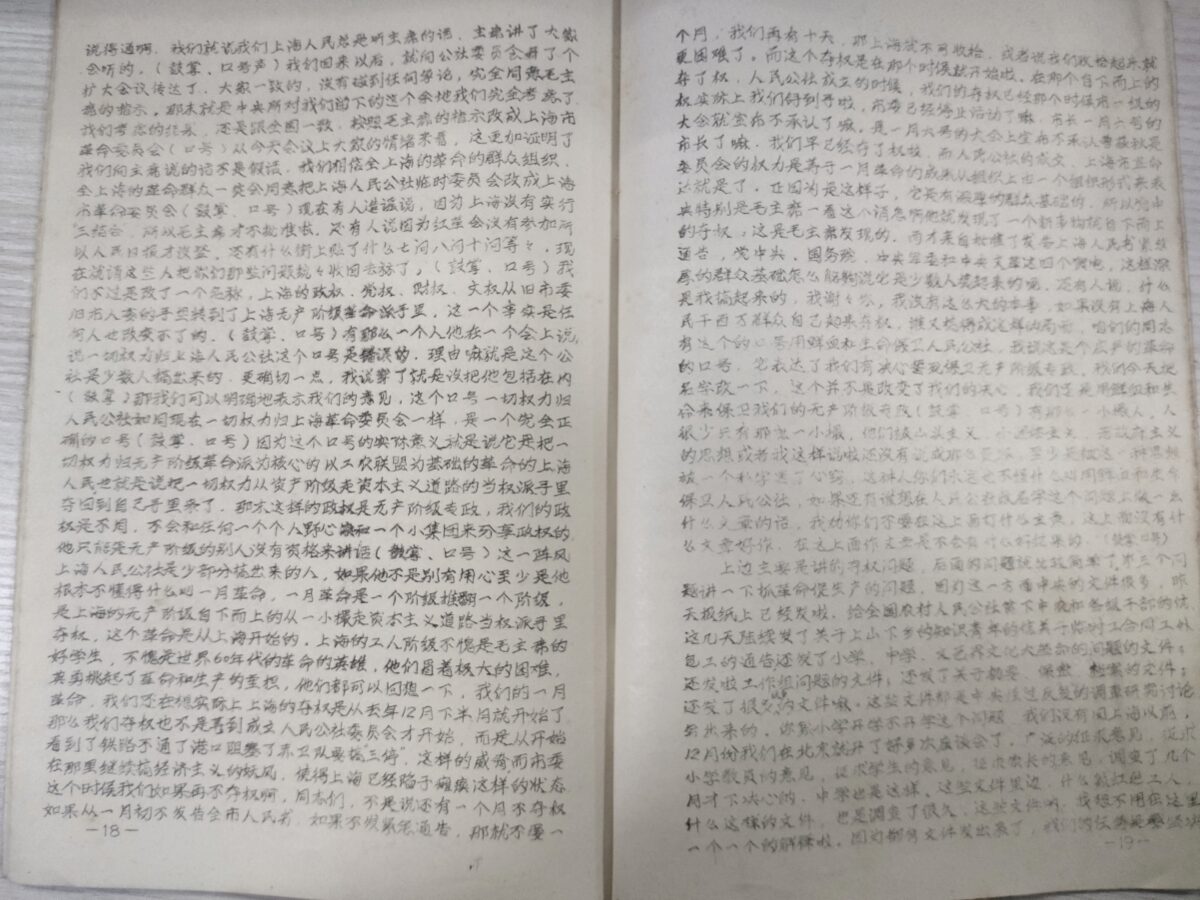 说得通啊，我们就说我们上海人民总是听主席的话，主席讲了大家
会听的，（鼓掌、口号声）我们回来以后，就向公社委员会开了个
扩大会议传达了，大家一致的，没有碰到任何争论，完全同意毛主
席的指示。那末就是中央所对我们留下的这个余地我们完全考虑了
我们考虑的结果，还是跟全国一致，按照毛主席的指示改成上海市
革命委员会（口号）从今天会议上大家的情绪来看，这更加证明了
我们向主席说的话不是假话，我们相信全上海的革命的群众组织，
全上海的革命群众一定会同意把上海人民公社临时委员会改成上海
市革命委员会（鼓掌、口号）现在有人造谣说，因为上海没有实行
“三结合，所以毛主席才不批准长，还有人说因为红革会没有参加所
以人民日报才没登，还有什么街上贴了什么七问八问十问等々，现
在就请这些人把你们那些问题统々收回去算了。（鼓掌、口号）我
们不过是改了一个名称，上海的政权、党权、财权、文权从旧市委
旧市人委的手里转到了上海无产阶级革命派手里，这一个事实是任
何人也改变不了的。（鼓掌、口号）有那么一个人他在一个会上说，
说一切权力归上海人民公社这个口号是错误的，理由嘛就是这个公
社是少数人搞出来的，更确切一点，我说穿了就是没把他包括在内
（鼓掌）那我们可以明确地表示我们的意见，这个口号一切权力归
人民公社如同现在一切权力归上海革命委员会一样，是一个完全正
确的口号（鼓掌、口号）因为这个口号的实际意义就是说它是把一
切权力归无产阶级革命派为核心的以工农联盟为基础的革命的上海
人民也就是说把一切权力从资产阶级走资本主义道路的当权派手里
夺回到自己手里来了。那末这样的政权是无产阶级专政，我们的政
权是不用，不会和任何一个个人野心家和一个小集团来分享政权的
他只能是无产阶级的别人没有资格来讲话（鼓掌、口号）这一阵风
上海人民公社是少部分搞出来的人，如果他不是别有用心至少是他
根本不懂得什么叫一月革命，一月革命是一个阶级推翻一个阶级，
是上海的无产阶级自下而上的从一小撮走资本主义道路当权派手里
夺权，这个革命是从上海开始的，上海的工人阶级不愧是毛主席的
好学生，不愧是世界60年代的革命的英雄，他们冒着极大的困难，
真实挑起了革命和生产的重担，他们都可以回想一下，我们的一月
革命，我们还在想实际上上海的夺权是从去年12月下半月就开始了
那么我们夺权也不是等到成立人民公社委员会才开始，而是从开始
看到了铁路不通了港口阻塞了赤卫队要搞“三停”，这样的威胁而市委
在那里继续搞经济主义的妖风，使得上海已经陷于瘫痪这样的状态
这个时候我们如果再不夺权啊，同志们，不是说还有一个月不夺权
如果从一月初不发告全市人民书，如果不发紧急通告，那就不要一
—18—
个月，我们再有十天，那上海就不可收拾，或者说我们收拾起来就
更困难了。而这个夺权是在那个时候就开始啦，在那个自下而上的
夺了权，人民公社成立的时候，我们的夺权已经那个时候市一级的
权实际上我们得到手啦，市委已经停止活动了嘛，市长一月六号的
大会就宣布不承认了嘛。是一月六号的大会上宣布不承认曹荻秋是
市长了嘛，我们早已经夺了权啦，而人民公社的成立，上海市革命
委员会的权力是基于一月革命的成果从组织上由一个组织形式来表
达就是了，正因为是这样子，它是有深厚的群众基础的，所以党中
央特别是毛主席一看这个消息啊他就发现了一个新事物就自下而上
的夺权，这是毛主席发现的，而才亲自批准了发告上海人民书紧急
通告，党中央，国务院，中央军委和中央文革这四个贺电，这样深
厚的群众基础怎么能够说它是少数人搞起来的呢，还有人说，什么
是我搞起来的，我谢々你，我没有这么大的本事，如果没有上海人
民千百万群众自己起来夺权，谁又想得成这样的局面，咱们的同志
有这个的口号用鲜血和生命保卫人民公社，我说这是个庄严的革命
的口号，它表达了我们有决心要来保卫无产阶级专政，我们今天把
名字改一下，这个并不是改变了我们的决心，我们还是用鲜血和生
命来保卫我们的无产阶级专政（鼓掌、口号）有那么一小撮人，人
很少只有那么一小撮，他们被山头主义，小团体主义，无政府主义
的思想或者我这样说啦还没有说成那么严重，至少是被这一种思想
被一个私字迷了心窍，这种人你们永远也不懂什么叫用鲜血和生命
保卫人民公社，如果还有谁想在人民公社改名字这个问题上做一点
什么文章的话，我劝你们不要在这上面打什么主意，这上面没有什
么文章好作，在这上面作文章是不会有什么好结果的。（鼓掌口号）
上边主要是讲的夺权问题，后面的问题说比较简单了，第三个问
题讲一下抓革命促生产的问题，因为这一方面中央的文件很多，昨
天报纸上已经发啦，给全国农村人民公社贫下中农和各级干部的信
这几天陆续发了关于上山下乡的知识青年的信关于临时工合同工外
包工的通告还发了小学，中学，文艺界文化大革命的问题的文件；
还发啦工作组问题的文件；还发了关于都要，保密，档案的文件；
还发了很多的文件嘛。这些文件都是中央经过反复的调查研究讨论
弄出来的，你象小学开学不开学这个问题，我们没有回上海以前，
12月份我们在北京就开了好多次座谈会了，广泛的征求意见，征求
小学教员的意见，征求学生的意见，征求家长的意见，调查了几个
月才下决心的，中学也是这样。这些文件里边，什么叙红包工人，
什么这样的文件，也是调查了很久，这些文件啊，我想不用在这里
一个一个的解释啦，因为都有文件发出来了，我们的任务是要坚决
—19—